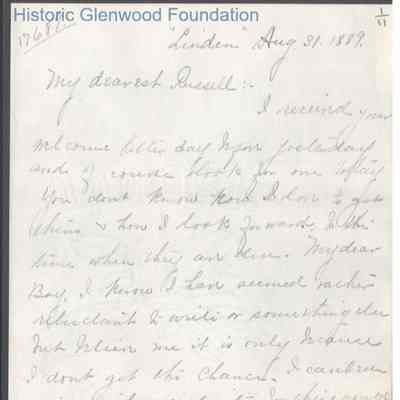 Historic Glenwood Foundation
1/11
"Linden" Aug 31. 1889.
My dearest Russell:-
I received your
welcome letter day before yesterday
and of course look for one today
You don't know how I love to get
them & how I look forward to the
time when they are here. My dear
Boy, I know I have seemed rather
reluctant to write or something else
but believe me it is only because
I don't get the chance. I